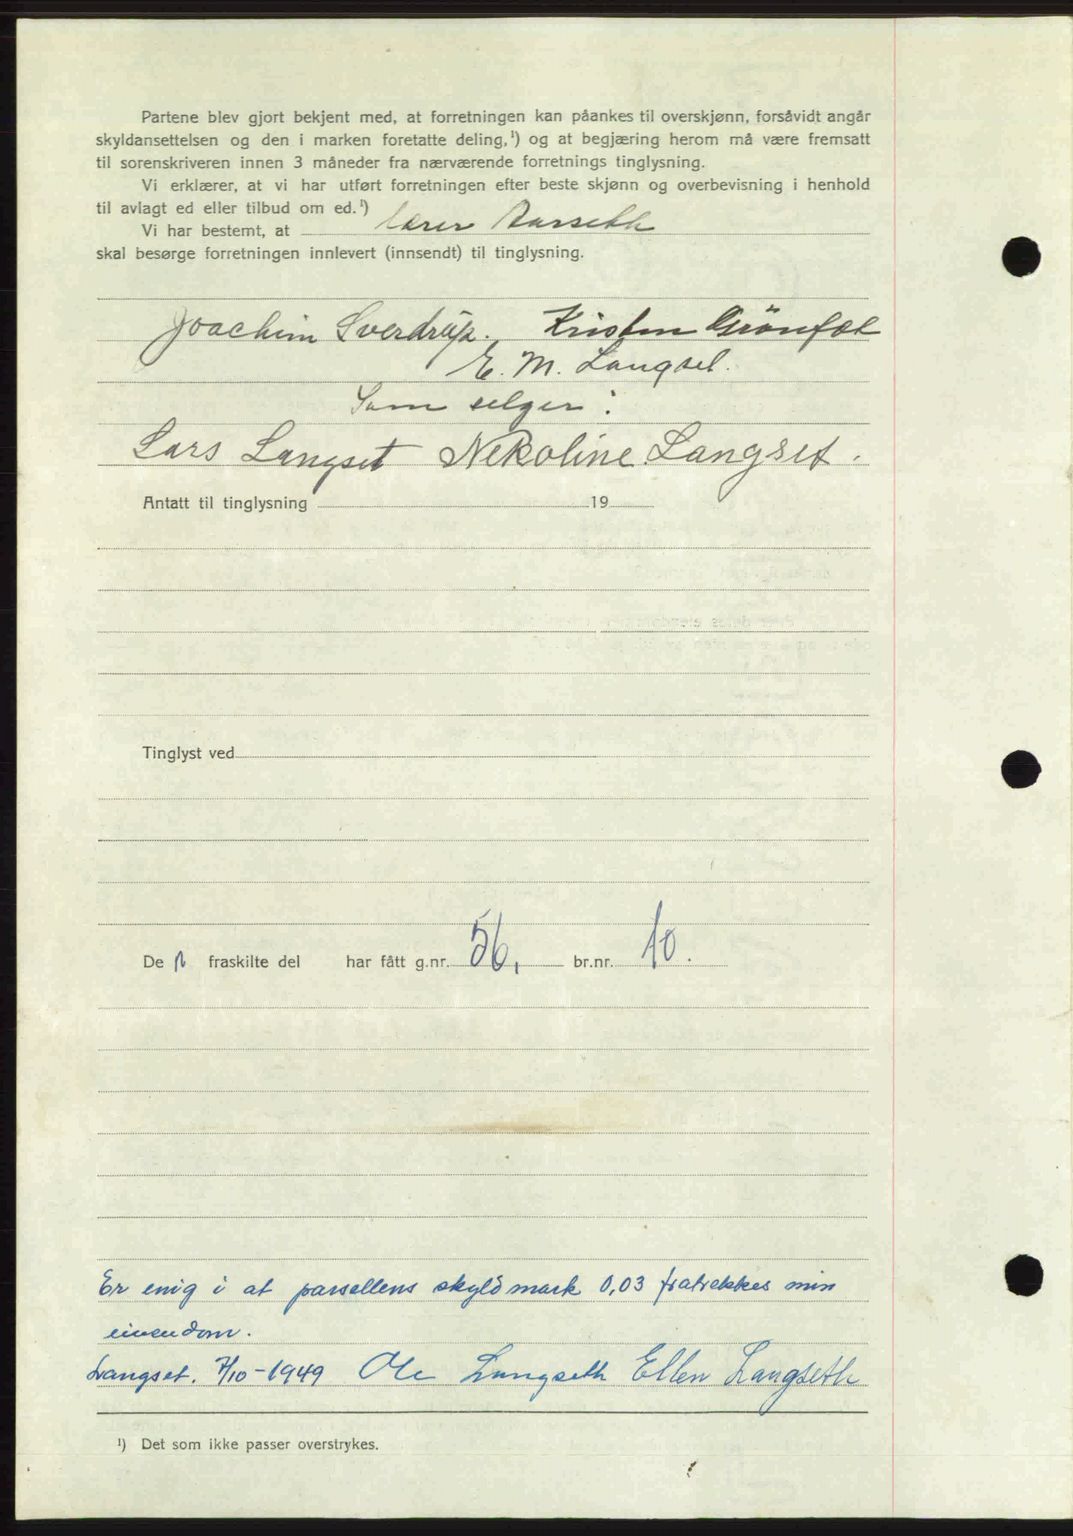 Partene blev gjort bekjent med, at forretningen kan påankes til overskjønn, forsåvidt angår
skyldansettelsen og den i marken foretatte deling,¹) og at begjæring herom må være fremsatt
til sorenskriveren innen 3 måneder fra nærværende forretnings tinglysning.
Vi erklærer, at vi har utført forretningen efter beste skjønn og overbevisning i henhold
til avlagt ed eller tilbud om ed.¹)
Vi har bestemt, at lærer Aarseth
skal besørge forretningen innlevert (innsendt) til tinglysning.
Joachim Sverdrup. Kristen
E. M. Langset.
Som selger:
Lars Langset Nekoline Langset.
Antatt til tinglysning 19
Tinglyst ved
De n fraskilte del har fått g.nr. 56, br.nr. 10.
Er enig i at parsellens skyld mark 0,03 fratrekkes min
eiendom.
Langset. 7/10-1949 Ole Langseth Ellen Langseth
¹) Det som ikke passer overstrykes.